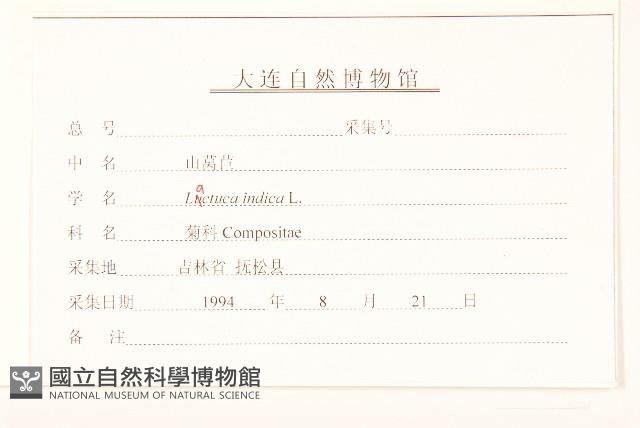 大连自然博物馆
总 号 采集号
中 名 山莴苣
学 名 Lactuca indica L.
科 名 菊科 Compositae
采集地 吉林省 抚松县
采集日期 1994 年 8 月 21 日
备 注
國立自然科學博物館
NATIONAL MUSEUM OF NATURAL SCIENCE